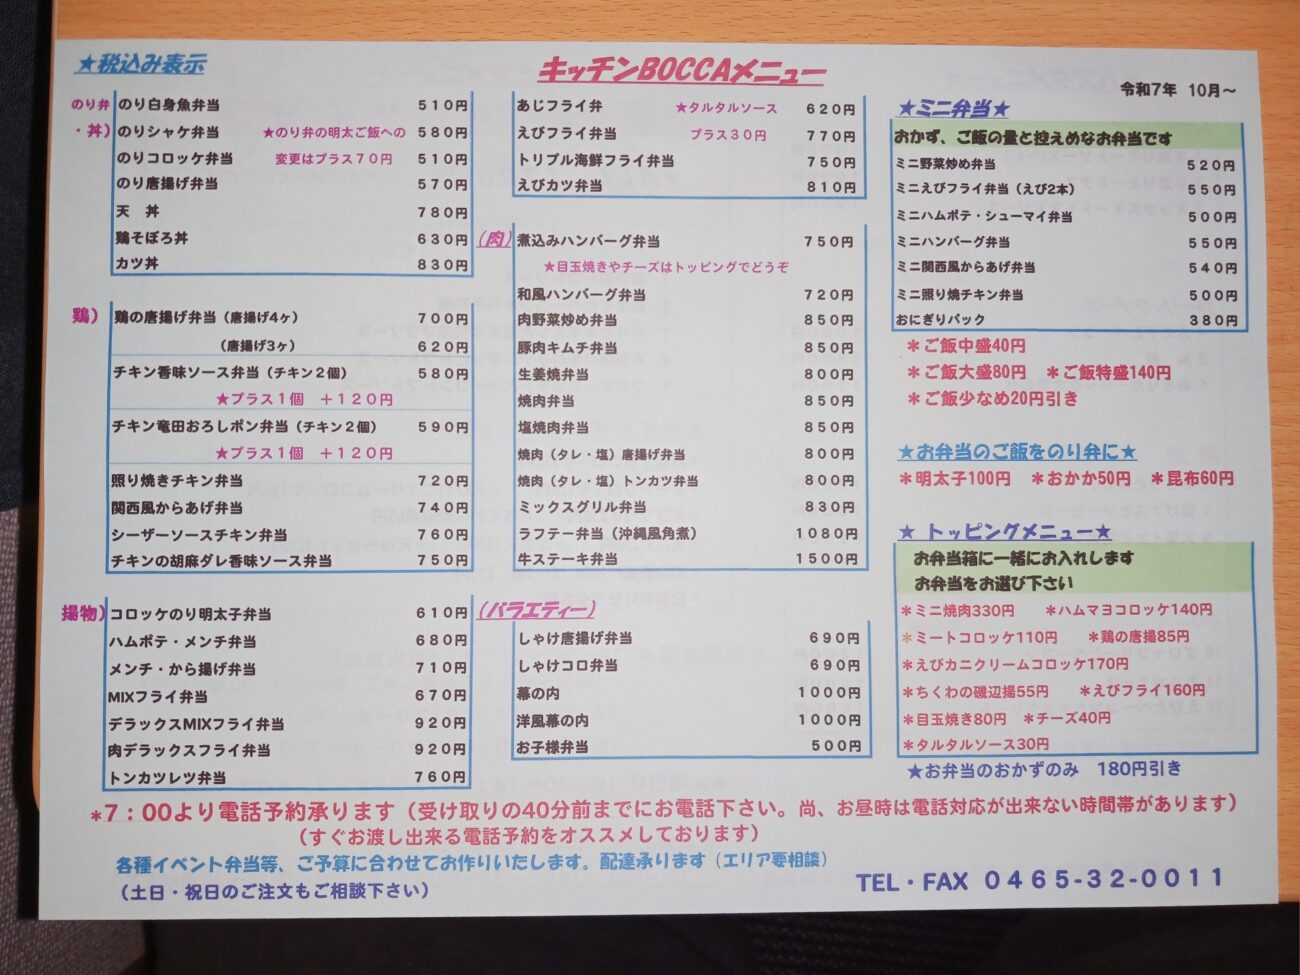 ★税込み表示
キッチンBOCCAメニュー
令和7年 10月～
のり弁・丼)
のり白身魚弁当 510円
のりシャケ弁当 ★のり弁の明太ご飯への 580円
のりコロッケ弁当 変更はプラス70円 510円
のり唐揚げ弁当 570円
天 丼 780円
鶏そぼろ丼 630円
カツ丼 830円
鶏)
鶏の唐揚げ弁当（唐揚げ4ヶ） 700円
（唐揚げ3ヶ） 620円
チキン香味ソース弁当（チキン2個） 580円
★プラス1個 +120円
チキン竜田おろしポン弁当（チキン2個） 590円
★プラス1個 +120円
照り焼きチキン弁当 720円
関西風からあげ弁当 740円
シーザーソースチキン弁当 760円
チキンの胡麻ダレ香味ソース弁当 750円
揚物)
コロッケのり明太子弁当 610円
ハムポテ・メンチ弁当 680円
メンチ・から揚げ弁当 710円
MIXフライ弁当 670円
デラックスMIXフライ弁当 920円
肉デラックスフライ弁当 920円
トンカツレツ弁当 760円
あじフライ弁 ★タルタルソース 620円
えびフライ弁当 プラス30円 770円
トリプル海鮮フライ弁当 750円
えびカツ弁当 810円
(肉)
煮込みハンバーグ弁当 750円
★目玉焼きやチーズはトッピングでどうぞ
和風ハンバーグ弁当 720円
肉野菜炒め弁当 850円
豚肉キムチ弁当 850円
生姜焼弁当 800円
焼肉弁当 850円
塩焼肉弁当 850円
焼肉（タレ・塩）唐揚げ弁当 800円
焼肉（タレ・塩）トンカツ弁当 800円
ミックスグリル弁当 830円
ラフテー弁当（沖縄風角煮） 1080円
牛ステーキ弁当 1500円
(バラエティー)
しゃけ唐揚げ弁当 690円
しゃけコロ弁当 690円
幕の内 1000円
洋風幕の内 1000円
お子様弁当 500円
★ミニ弁当★
おかず、ご飯の量と控えめなお弁当です
ミニ野菜炒め弁当 520円
ミニえびフライ弁当（えび2本） 550円
ミニハムポテ・シューマイ弁当 500円
ミニハンバーグ弁当 550円
ミニ関西風からあげ弁当 540円
ミニ照り焼チキン弁当 500円
おにぎりパック 380円
＊ご飯中盛40円
＊ご飯大盛80円 ＊ご飯特盛140円
＊ご飯少なめ20円引き
★お弁当のご飯をのり弁に★
＊明太子100円 ＊おかか50円 ＊昆布60円
★ トッピングメニュー★
お弁当箱に一緒にお入れします
お弁当をお選び下さい
＊ミニ焼肉330円 ＊ハムマヨコロッケ140円
＊ミートコロッケ110円 ＊鶏の唐揚85円
＊えびカニクリームコロッケ170円
＊ちくわの磯辺揚55円 ＊えびフライ160円
＊目玉焼き80円 ＊チーズ40円
＊タルタルソース30円
★お弁当のおかずのみ 180円引き
＊7：00より電話予約承ります（受け取りの40分前までにお電話下さい。尚、お昼時は電話対応が出来ない時間帯があります）
（すぐお渡し出来る電話予約をオススメしております）
各種イベント弁当等、ご予算に合わせてお作りいたします。配達承ります（エリア要相談）
（土日・祝日のご注文もご相談下さい）
TEL・FAX 0465-32-0011